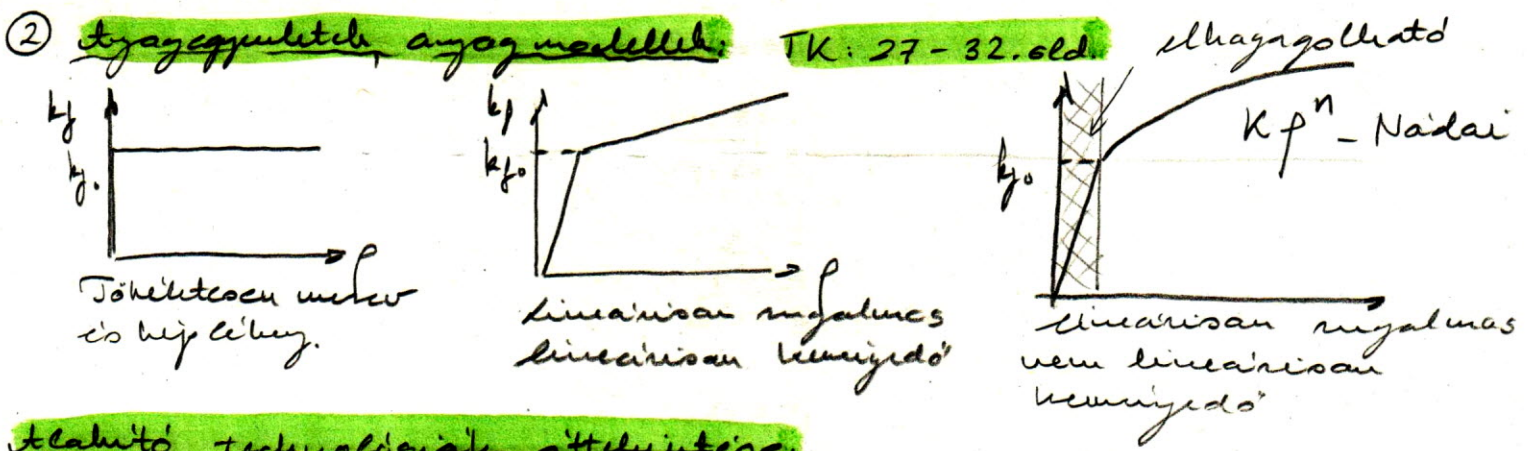 ② Anyagegyenletek, anyagmodellek: TK: 27-32. old.
elhanyagolható
kf
kf
kf0
kf0
kf0
Kφⁿ - Nádai
φ
φ
Tökéletesen merev
és képlékeny.
Lineárisan rugalmas
lineárisan keményedő
Lineárisan rugalmas
nem lineárisan
keményedő
Alakító technológiák áttekintése.